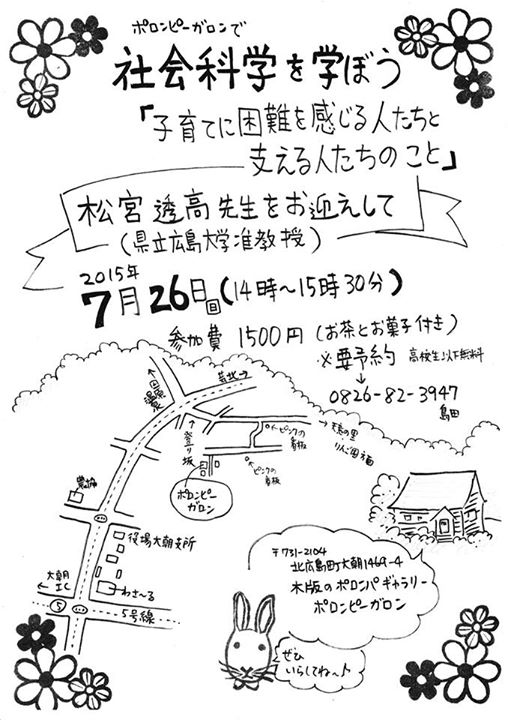 ポロンピーガロンで
社会科学を学ぼう
「子育てに困難を感じる人たちと
支える人たちのこと」
松宮 透高 先生をお迎えして
(県立広島大学准教授)
2015年
7月26日㊐(14時〜15時30分)
参加費 1500円(お茶とお菓子付き)
※要予約 高校生以下無料
↓
0826-82-3947
島田
芸北→
登り坂
ピンクの
看板
ピンクの
看板
ポロンピー
ガロン
農協
役場大朝支所
わさ〜る
大朝
IC
5
5号線
〒731-2104
北広島町大朝1469-4
木版のポロンパギャラリー
ポロンピーガロン
ぜひ
いらしてね〜♪